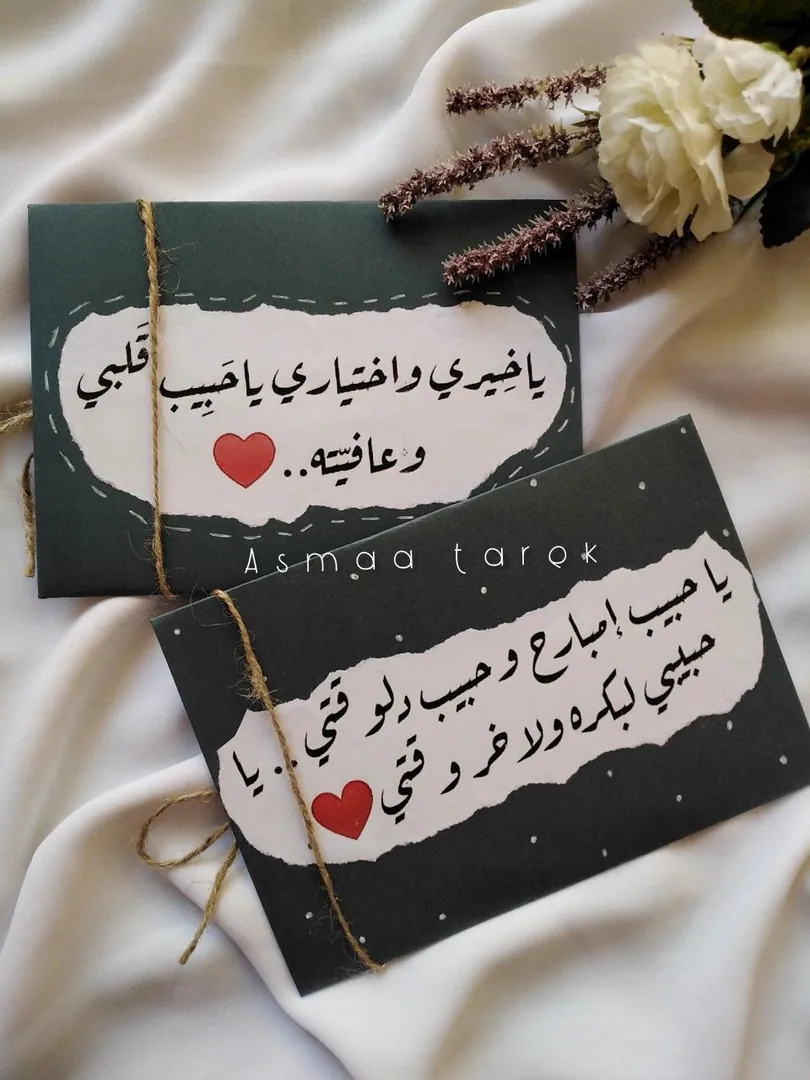 ياخِيري واختياري ياحَبِيب قَلبي
وعافيّته.. ❤️
Asmaa tarek
يا حبيب إمبارح وحبيب دلوقتي.. يا
حبيبي لبكره ولاخر وقتي ❤️